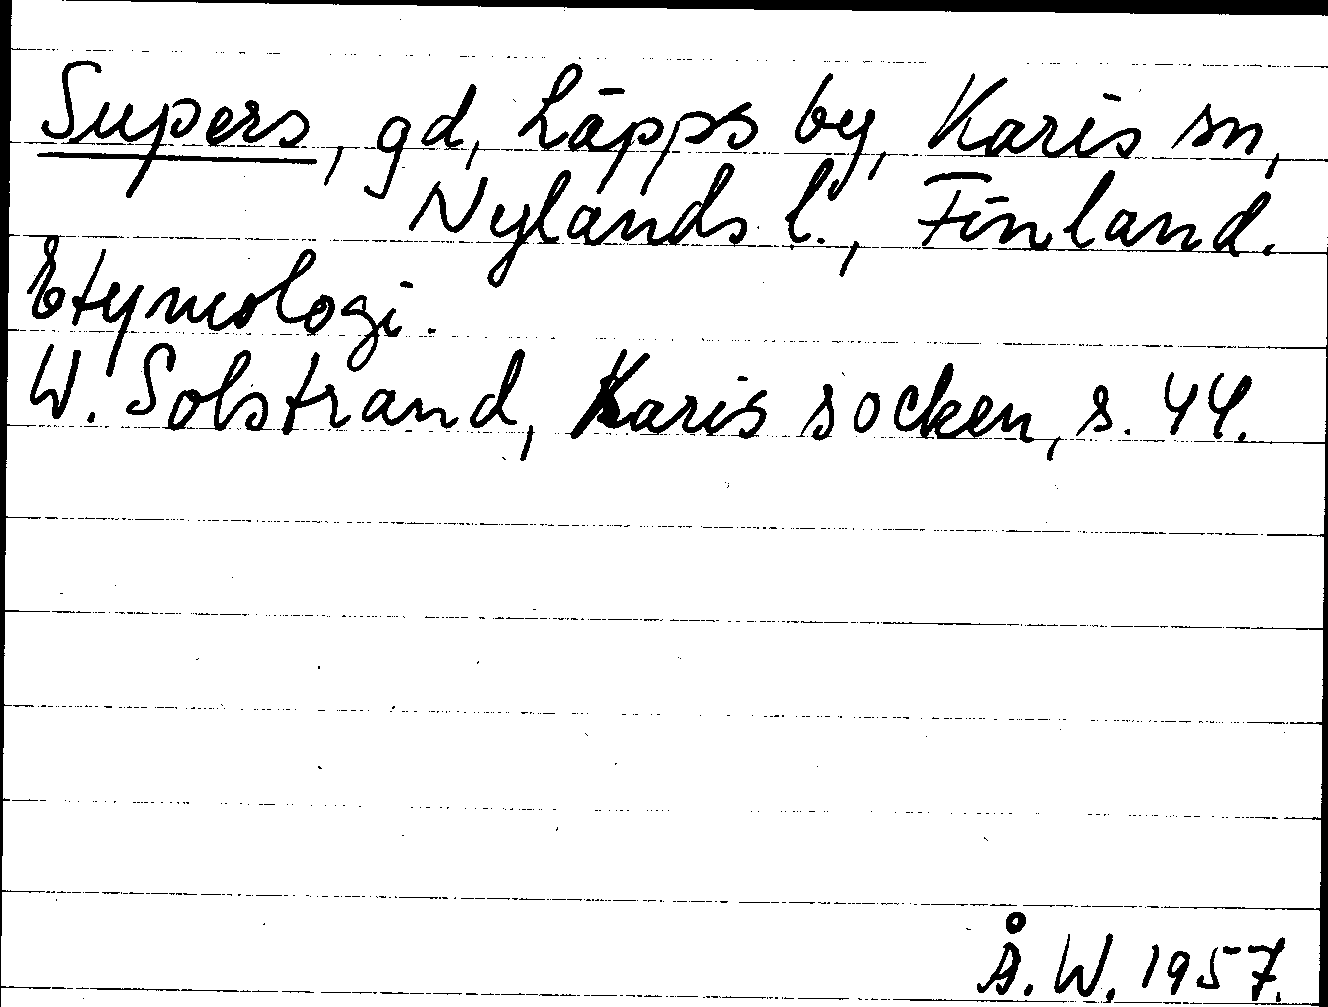 Supers, gd, Läpps by, Karis sn,
Nylands l., Finland.
Etymologi.
W. Solstrand, Karis socken, s. 44.
Å. W. 1957.